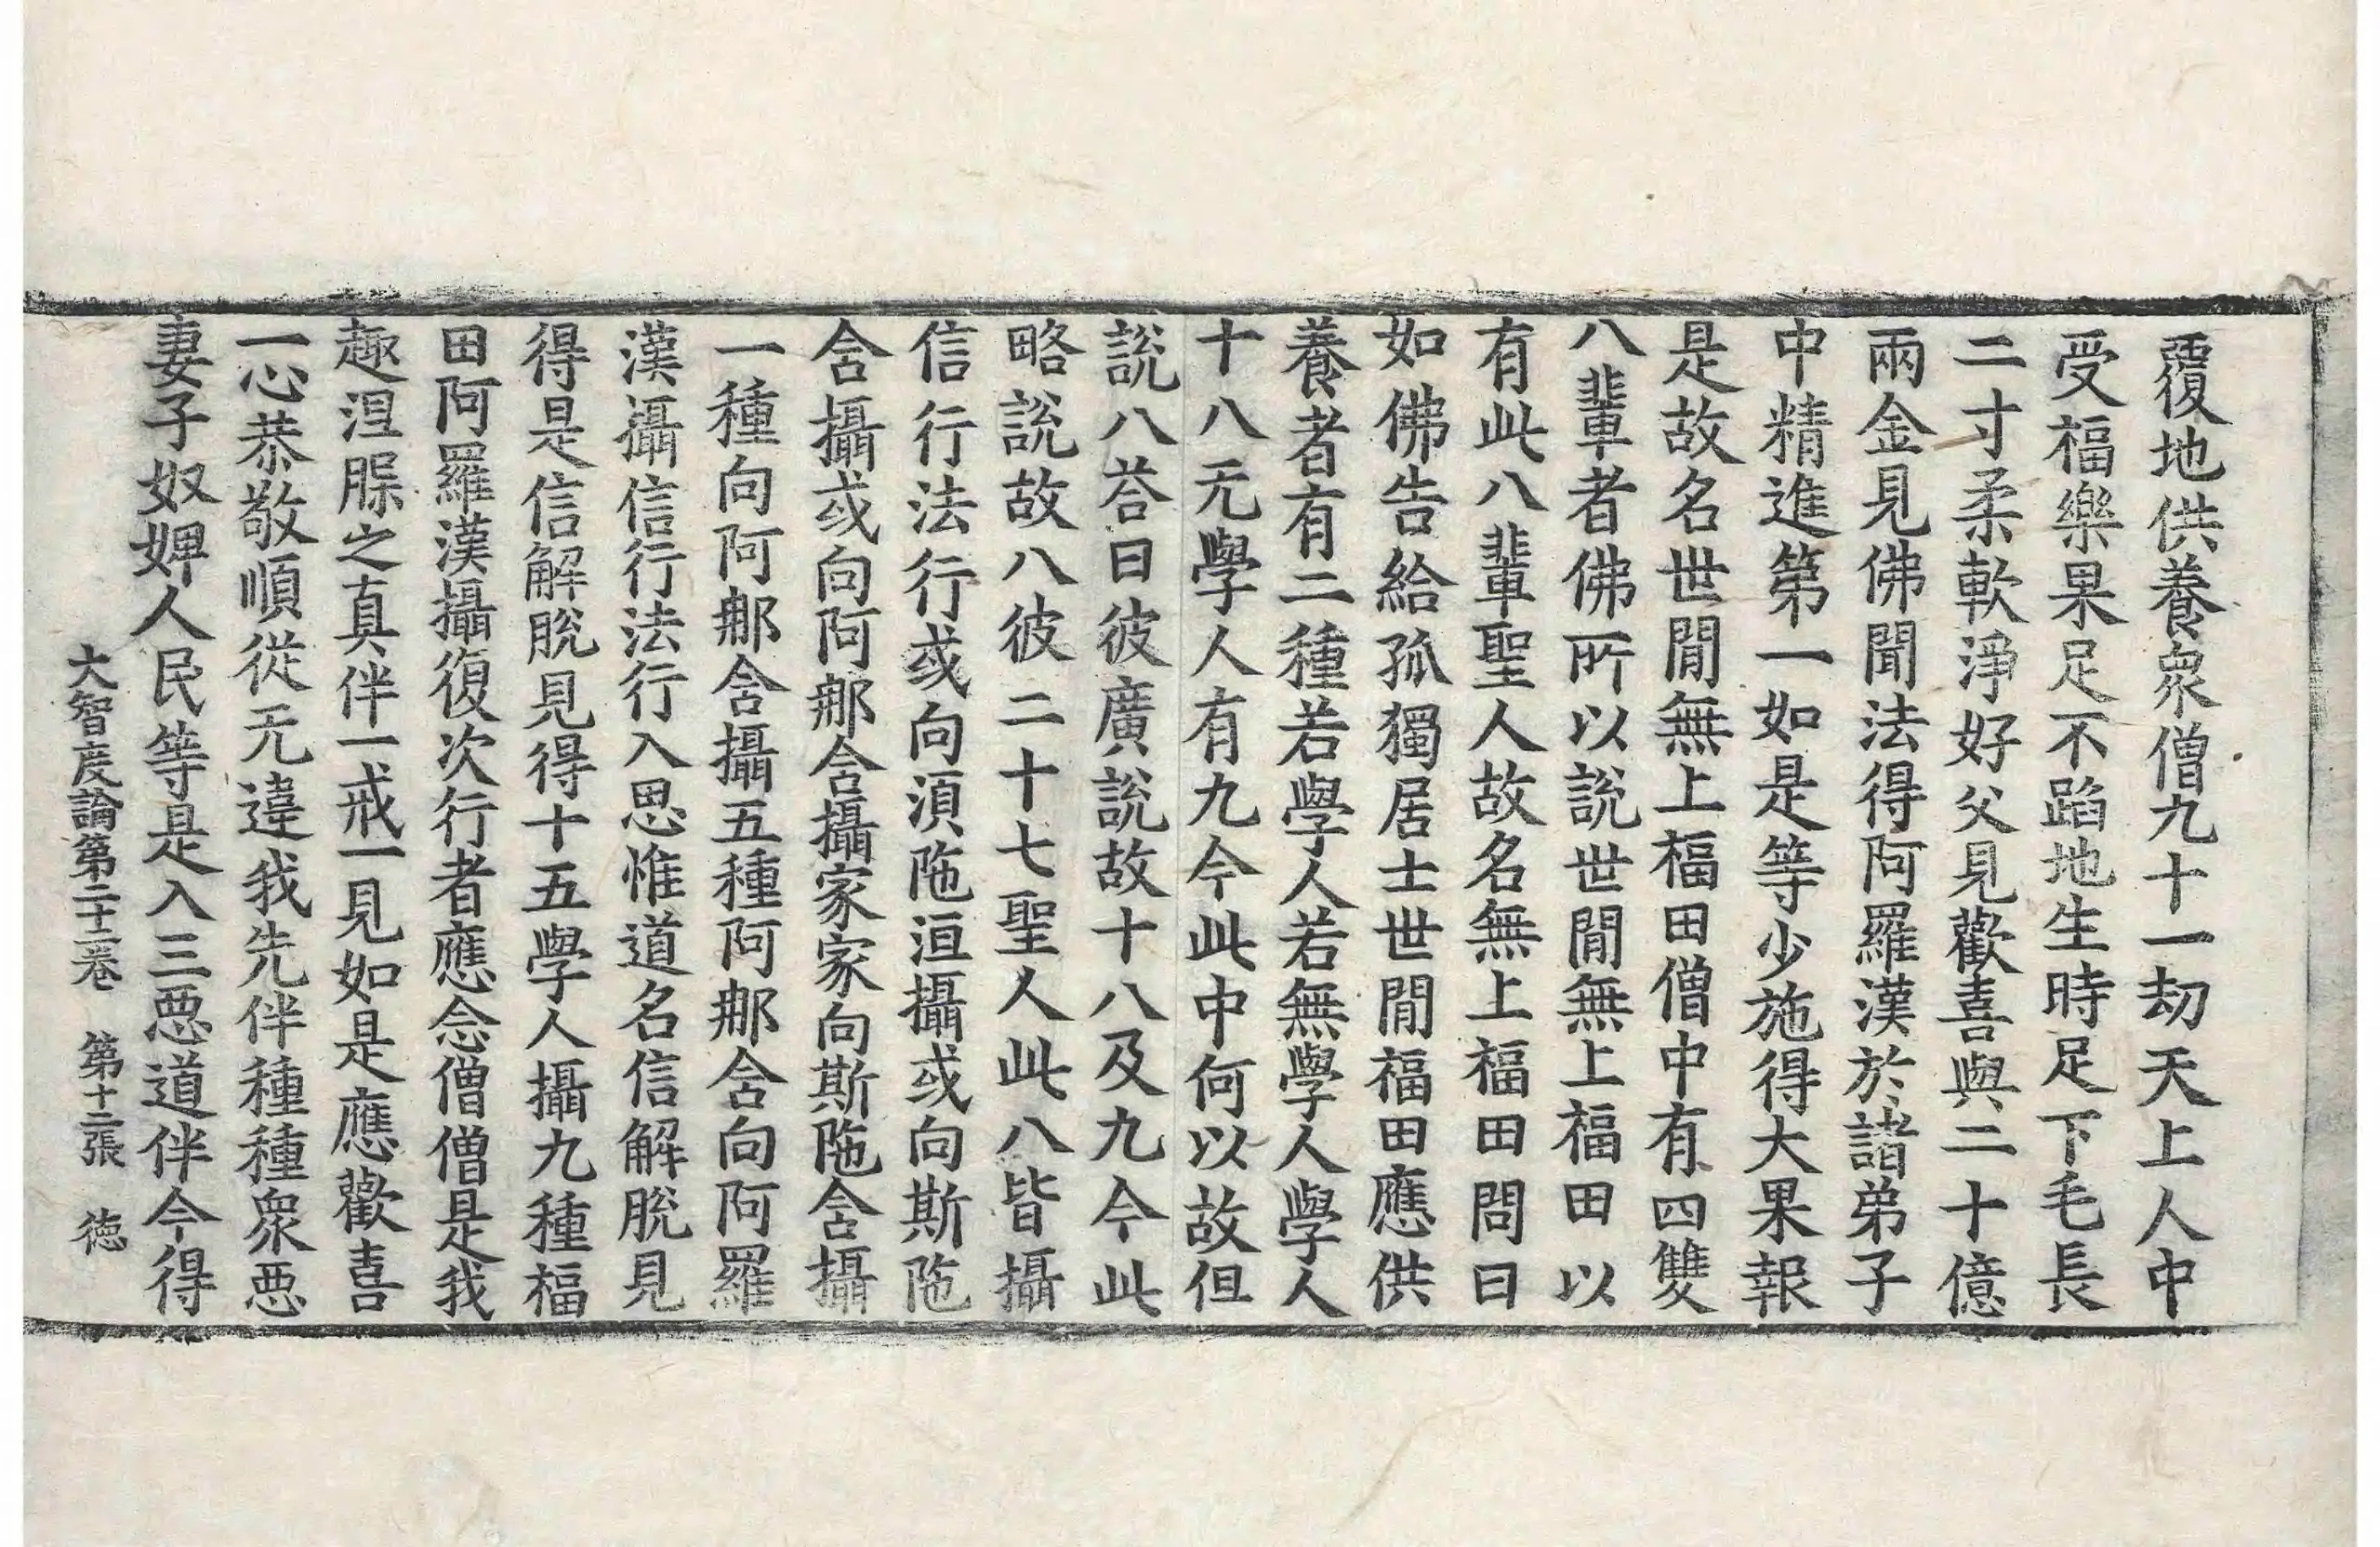 覆地供養衆僧九十一劫天上人中
受福樂果足不蹈地生時足下毛長
二寸柔軟淨好父見歡喜與二十億
兩金見佛聞法得阿羅漢於諸弟子
中精進第一如是等少施得大果報
是故名世閒無上福田僧中有四雙
八輩者佛所以說世閒無上福田以
有此八輩聖人故名無上福田問曰
如佛告給孤獨居士世閒福田應供
養者有二種若學人若無學人學人
十八无學人有九今此中何以故但
說八荅曰彼廣說故十八及九今此
略說故八彼二十七聖人此八皆攝
信行法行或向湏陁洹攝或向斯陁
含攝或向阿𨙻含攝家家向斯陁含攝
一種向阿𨙻含攝五種阿𨙻含向阿羅
漢攝信行法行入思惟道名信解脫見
得是信解脫見得十五學人攝九種福
田阿羅漢攝復次行者應念僧僧是我
趣涅𦞄之真伴一戒一見如是應歡喜
一心恭敬順從无違我先伴種種衆惡
妻子奴婢人民等是入三惡道伴今得
大智度論第二十二卷 第十二張 徳